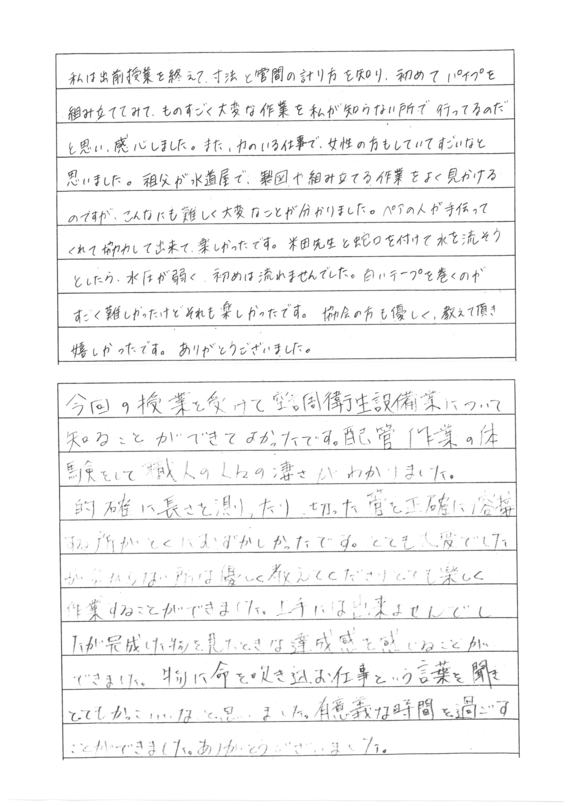 私は出前授業を終えて、寸法と管間の計り方を知り、初めてパイプを
組み立ててみて、ものすごく大変な作業を私が知らない所で行ってるのだ
と思い、感心しました。また、力のいる仕事で、女性の方もしていてすごいなと
思いました。祖父が水道屋で、製図や組み立てる作業をよく見かける
のですが、こんなにも難しく大変なことが分かりました。ペアの人が手伝って
くれて協力して出来て、楽しかったです。米田先生と蛇口を付けて水を流そう
としたら、水圧が弱く、初めは流れませんでした。白いテープを巻くのが
すごく難しかったけどそれも楽しかったです。協会の方も優しく、教えて頂き
嬉しかったです。ありがとうございました。
今回の授業を受けて空調衛生設備業について
知ることができてよかったです。配管作業の体
験をして職人の人々の凄さがわかりました。
的確に長さを測ったり、切った管を正確に溶接
する所がとくにむずかしかったです。とても大変でした
が分からない所は優しく教えてくださりとても楽しく
作業することができました。上手には出来ませんでし
たが完成した物を見たときな達成感を感じることが
できました。物に命を吹き込むお仕事という言葉を聞き
とてもかっこいいなと思いました。有意義な時間を過ごす
ことができました。ありがとうございました。